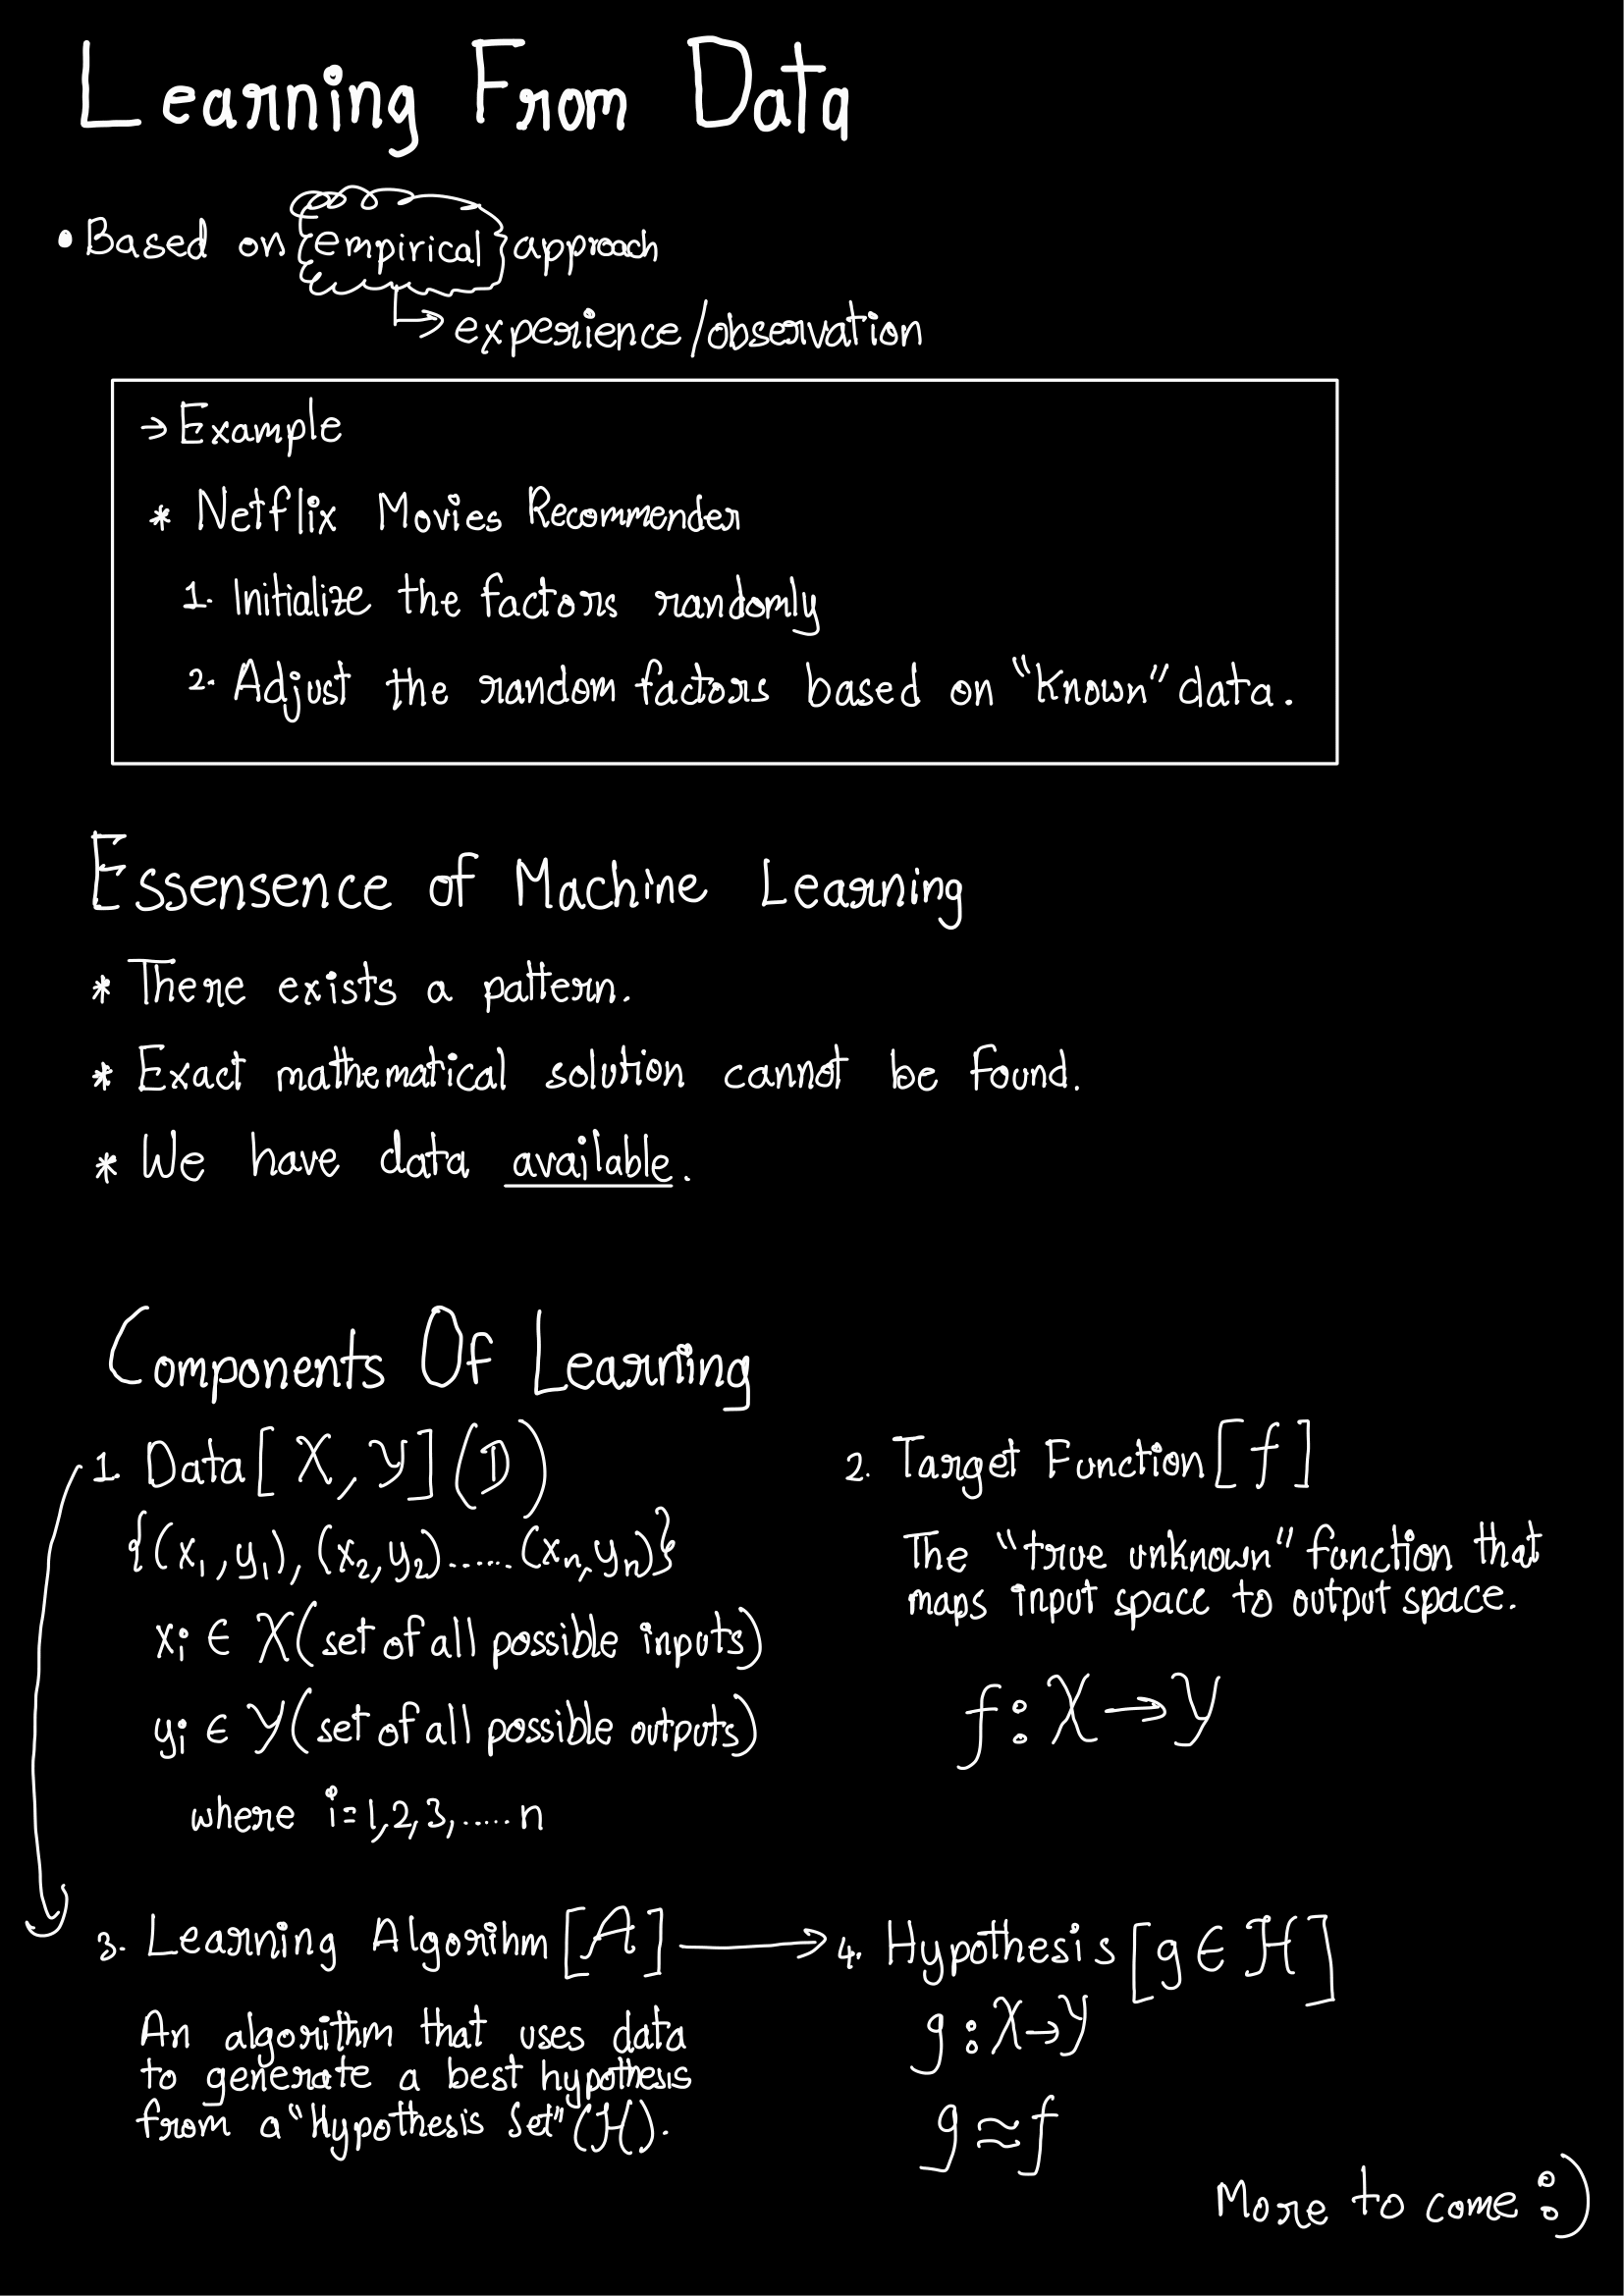 Learning From Data
• Based on empirical approach
→ experience/observation
→ Example
* Netflix Movies Recommender
1. Initialize the factors randomly
2. Adjust the random factors based on "Known" data.
Essensence of Machine Learning
* There exists a pattern.
* Exact mathematical solution cannot be found.
* We have data available.
Components Of Learning
1. Data [X, Y] (D)
{(x₁, y₁), (x₂, y₂)......(xₙ, yₙ)}
xᵢ ∈ X (set of all possible inputs)
yᵢ ∈ Y (set of all possible outputs)
where i=1,2,3,.....n
2. Target Function [f]
The "true unknown" function that
maps input space to output space.
f : X → Y
3. Learning Algorihm [A] →
An algorithm that uses data
to generate a best hypothesis
from a "Hypothesis Set" (H).
4. Hypothesis [g ∈ H]
g : X → Y
g ≈ f
More to come :)